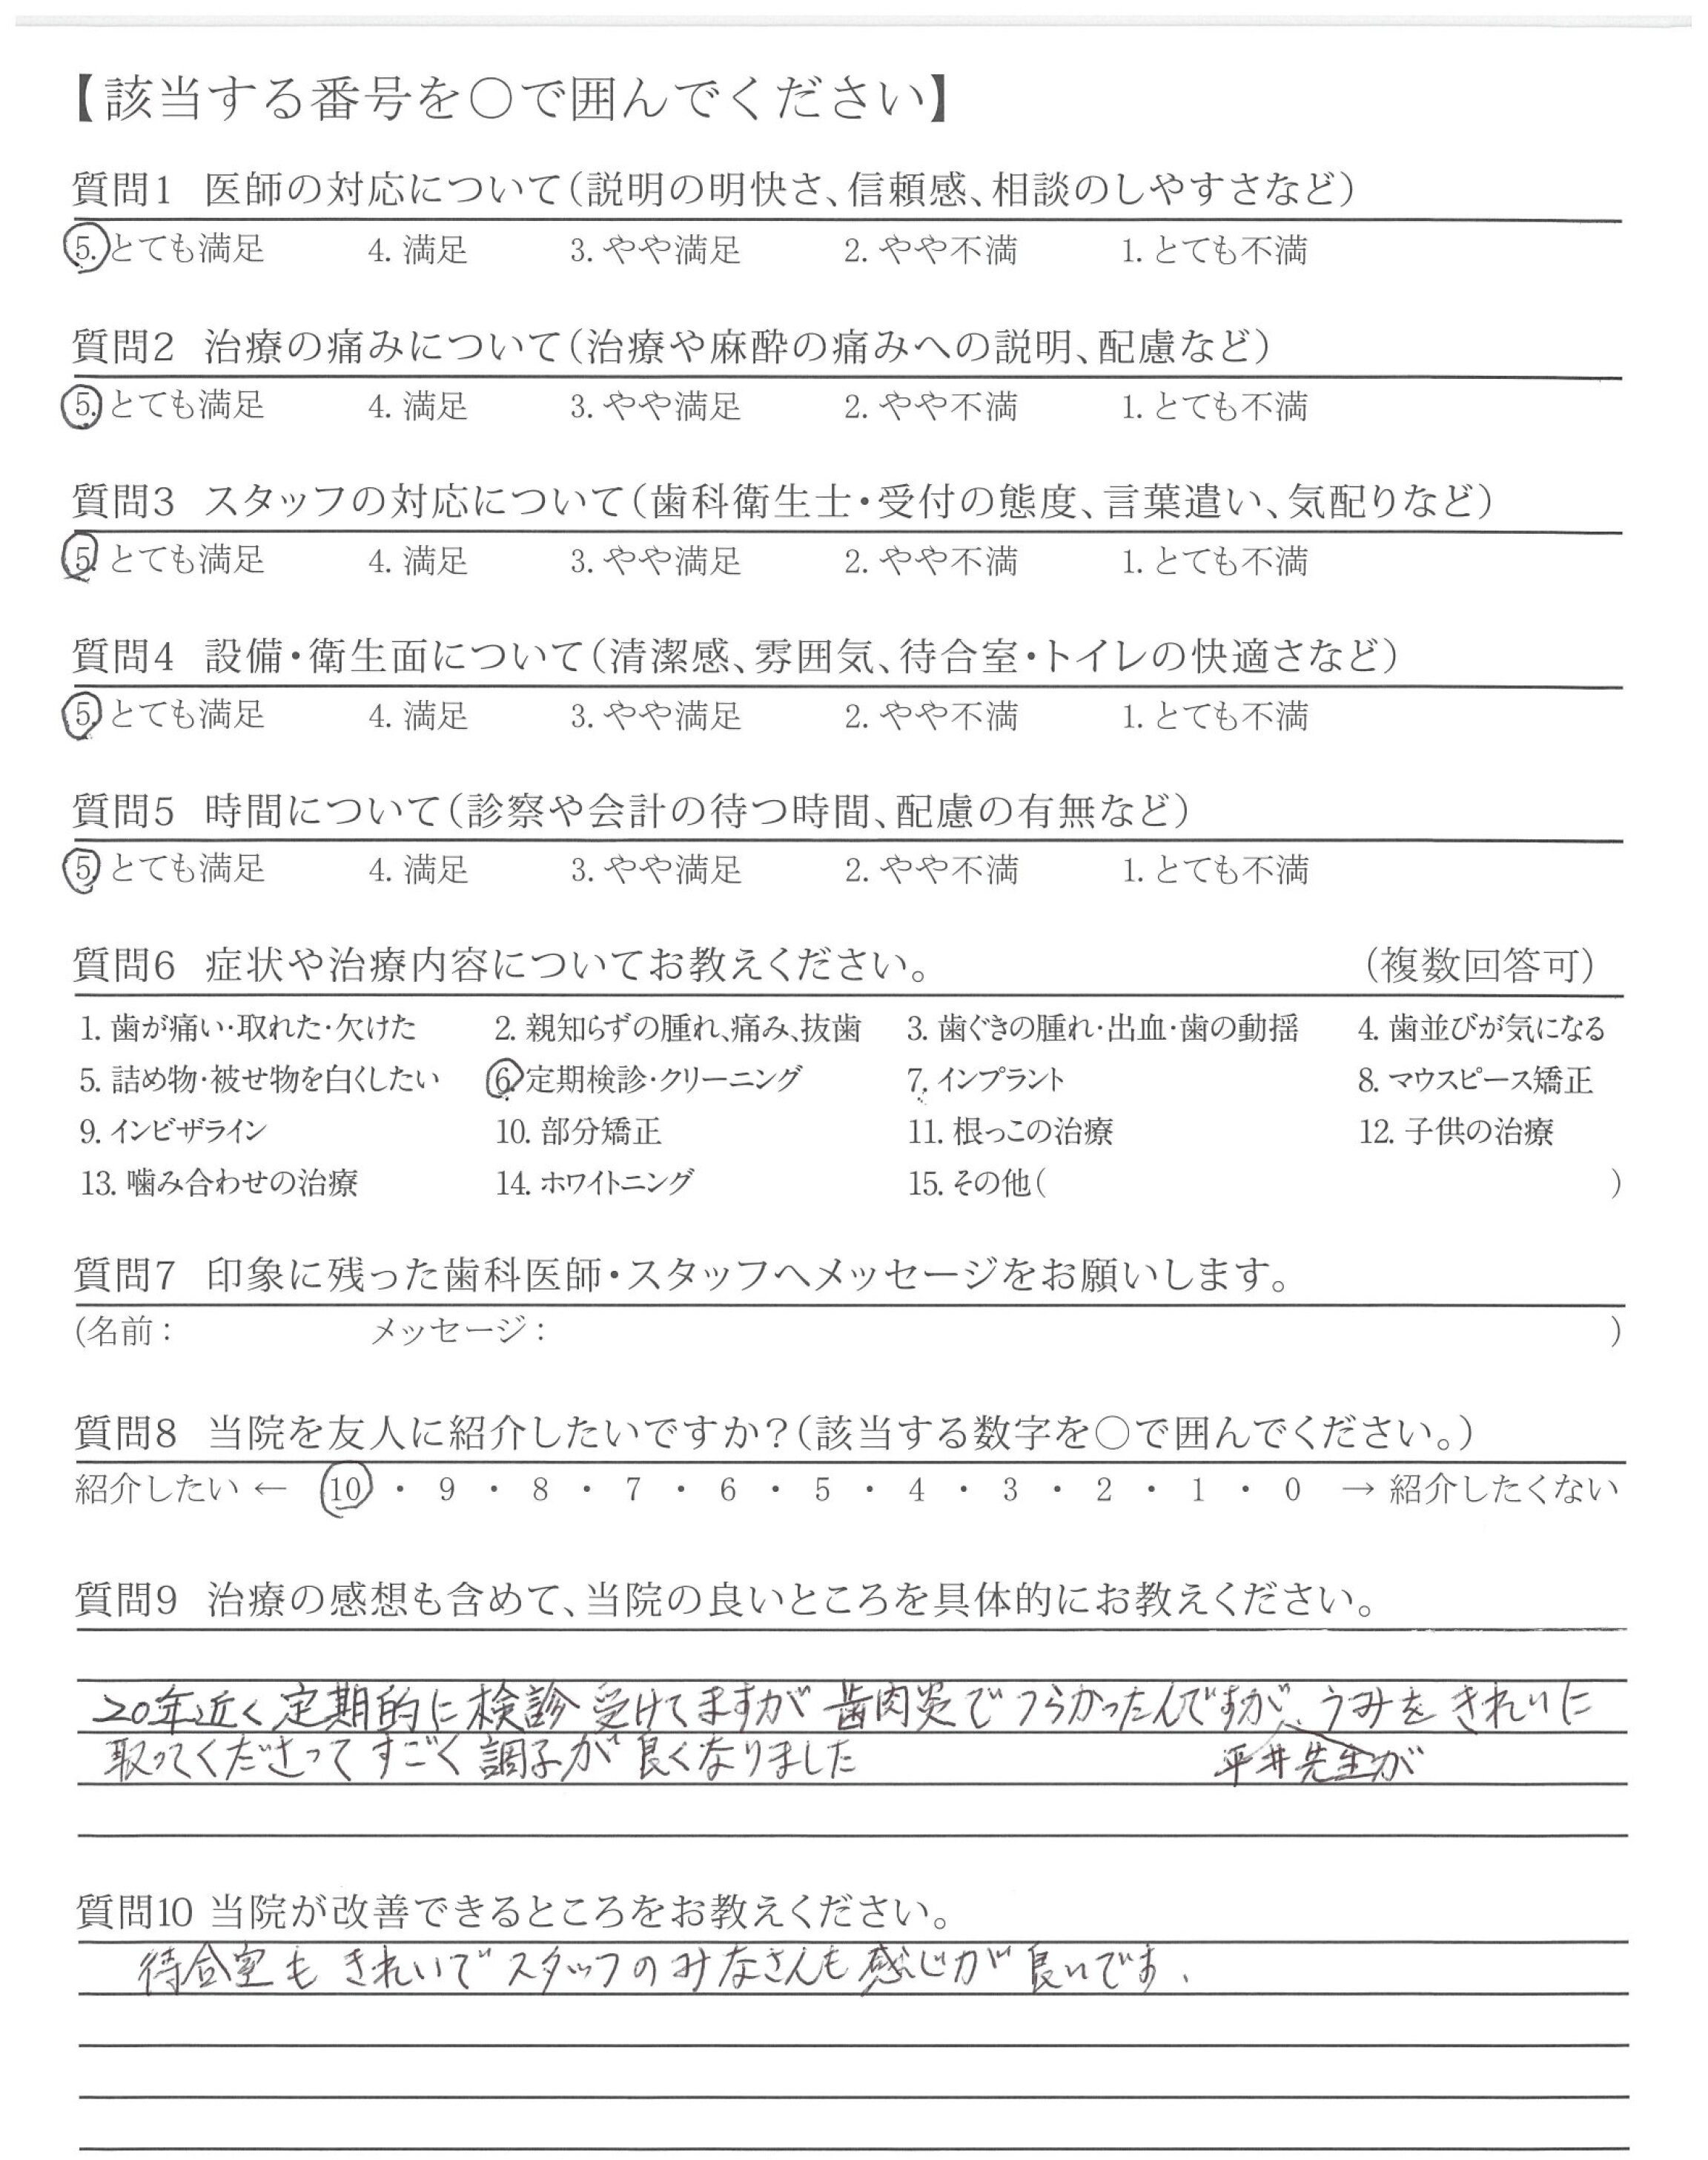 【該当する番号を○で囲んでください】
質問1 医師の対応について(説明の明快さ、信頼感、相談のしやすさなど)
5. とても満足 4. 満足 3. やや満足 2. やや不満 1. とても不満
質問2 治療の痛みについて(治療や麻酔の痛みへの説明、配慮など)
5. とても満足 4. 満足 3. やや満足 2. やや不満 1. とても不満
質問3 スタッフの対応について(歯科衛生士・受付の態度、言葉遣い、気配りなど)
5. とても満足 4. 満足 3. やや満足 2. やや不満 1. とても不満
質問4 設備・衛生面について(清潔感、雰囲気、待合室・トイレの快適さなど)
5. とても満足 4. 満足 3. やや満足 2. やや不満 1. とても不満
質問5 時間について(診察や会計の待つ時間、配慮の有無など)
5. とても満足 4. 満足 3. やや満足 2. やや不満 1. とても不満
質問6 症状や治療内容についてお教えください。 (複数回答可)
1. 歯が痛い・取れた・欠けた 2. 親知らずの腫れ、痛み、抜歯 3. 歯ぐきの腫れ・出血・歯の動揺 4. 歯並びが気になる
5. 詰め物・被せ物を白くしたい 6. 定期検診・クリーニング 7. インプラント 8. マウスピース矯正
9. インビザライン 10. 部分矯正 11. 根っこの治療 12. 子供の治療
13. 噛み合わせの治療 14. ホワイトニング 15. その他( )
質問7 印象に残った歯科医師・スタッフへメッセージをお願いします。
(名前: メッセージ: )
質問8 当院を友人に紹介したいですか?(該当する数字を○で囲んでください。)
紹介したい ← 10 ・ 9 ・ 8 ・ 7 ・ 6 ・ 5 ・ 4 ・ 3 ・ 2 ・ 1 ・ 0 → 紹介したくない
質問9 治療の感想も含めて、当院の良いところを具体的にお教えください。
20年近く定期的に検診受けてますが 歯肉炎でつらかったんですが、うみをきれいに
取ってくださってすごく調子が良くなりました 平井先生が
質問10 当院が改善できるところをお教えください。
待合室もきれいでスタッフのみなさんも感じが良いです。